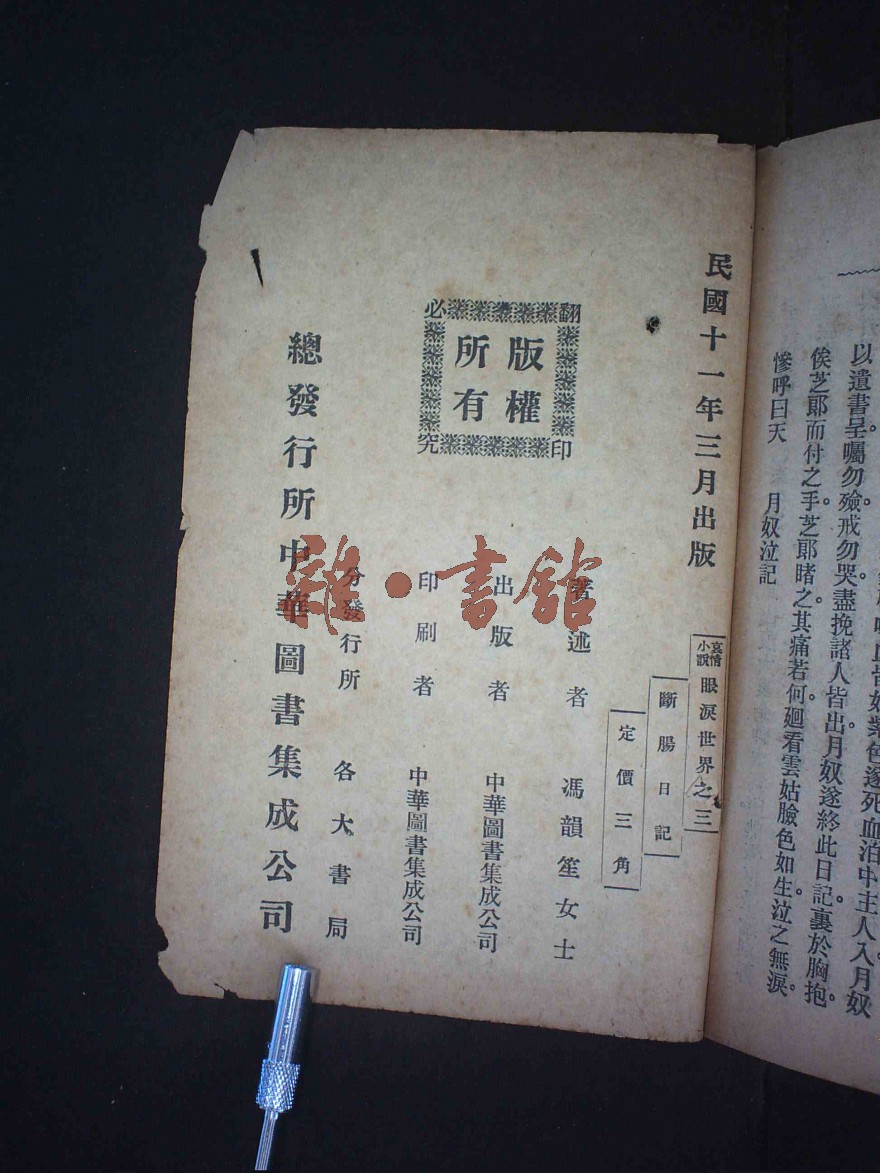 以遺書呈囑勿殮戒勿哭盡挽諸人皆出月奴遂終此日記裹於胸抱。
俟芝郞而付之手芝郞睹之其痛若何廻看雲姑臉色如生泣之無淚。
慘呼曰天 月奴泣記
民國十一年三月出版
哀情小說 眼淚世界之三
斷腸日記
定價三角
翻印必究
版權所有
著述者 馮韻笙女士
出版者 中華圖書集成公司
印刷者 中華圖書集成公司
分發行所 各大書局
總發行所中華圖書集成公司
雜·書館